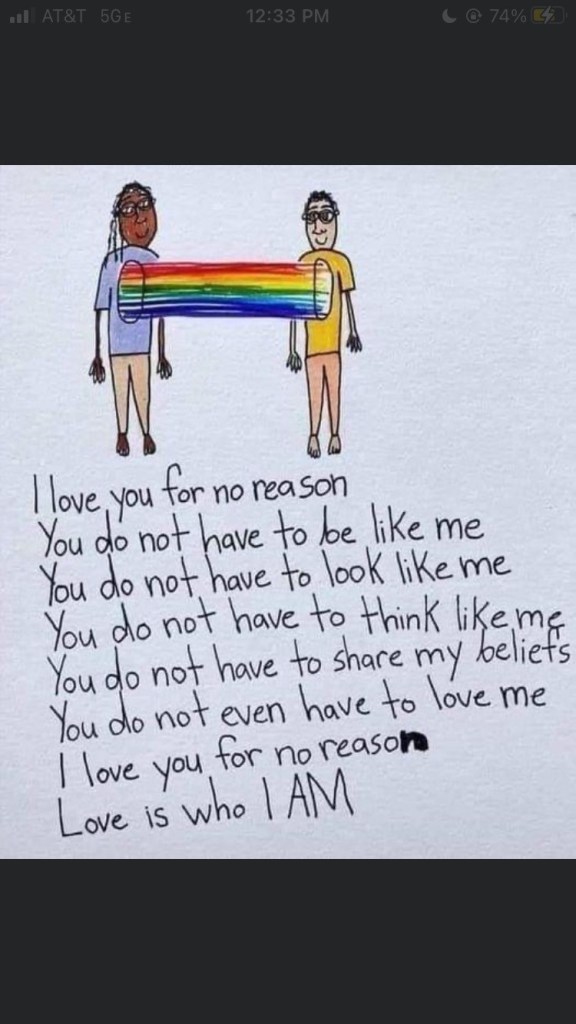 AT&T 5GE 12:33 PM 74%
I love you for no reason
You do not have to be like me
You do not have to look like me
You do not have to think like me
You do not have to share my beliefs
You do not even have to love me
I love you for no reason
Love is who I AM